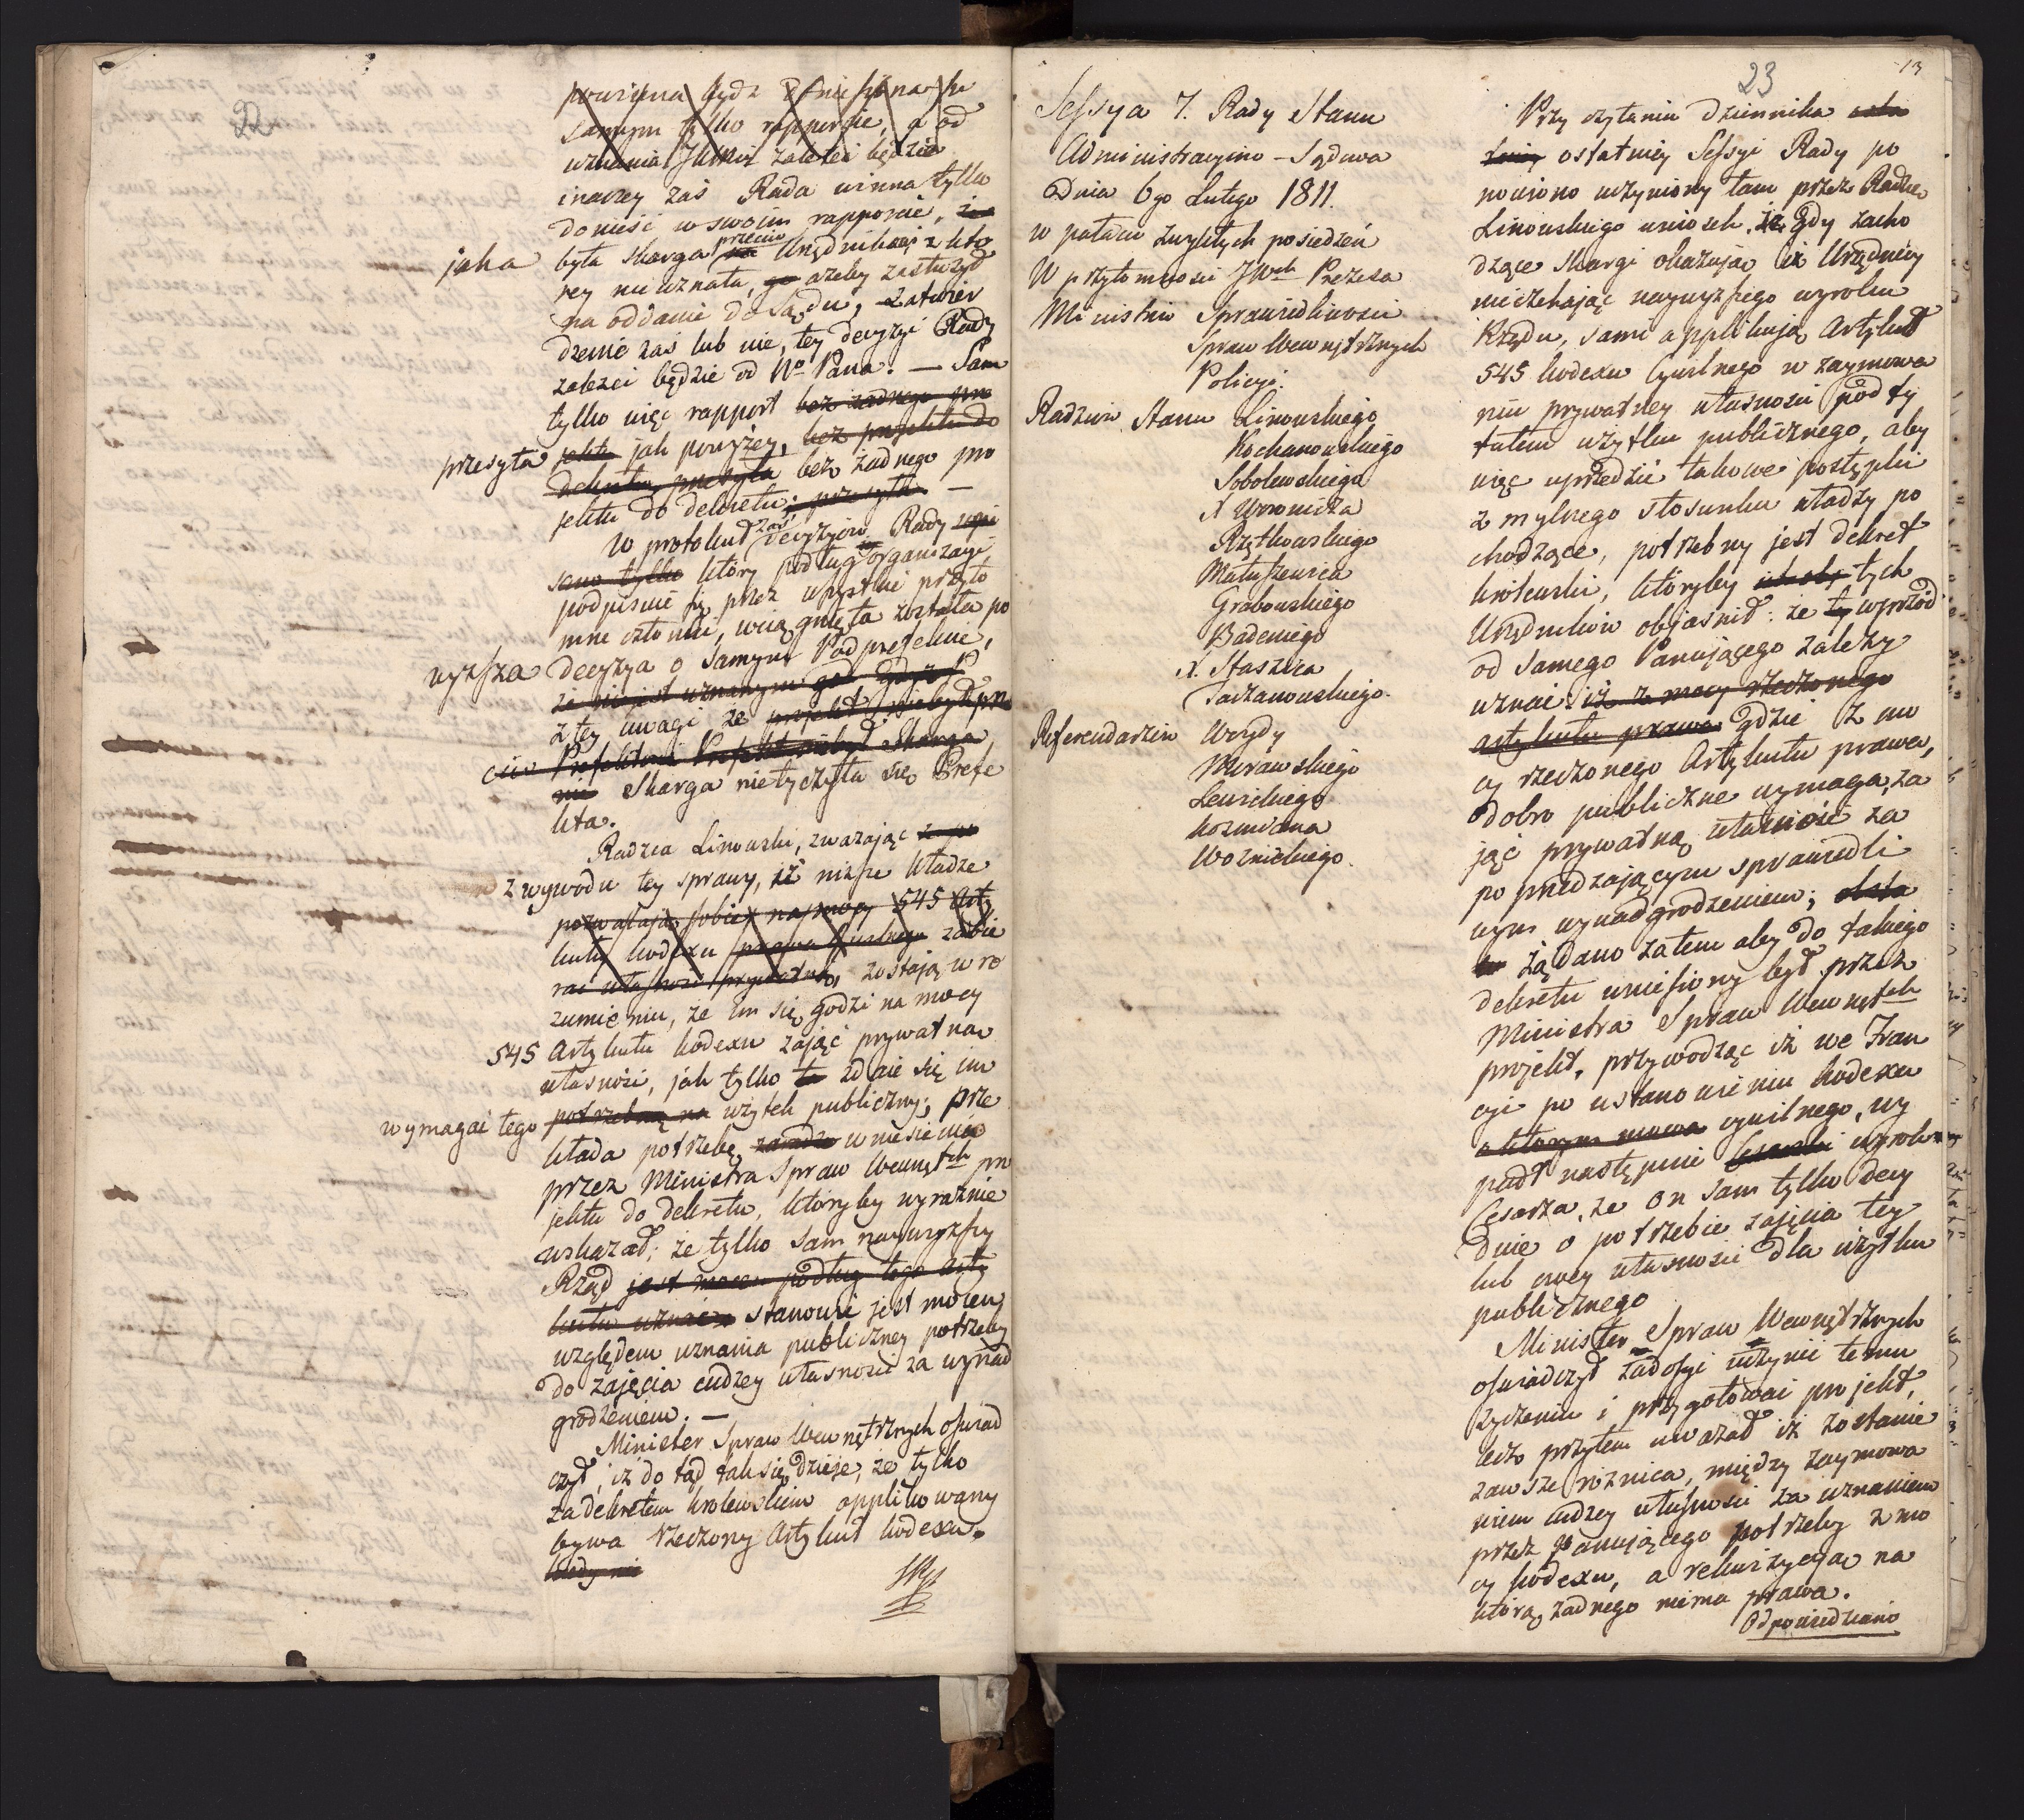 22
powinna bydź
samym tylko rapporcie, a od
uznania JKMci zależeć będzie
inaczey zaś Rada winna tylko
donieść w swoim rapporcie, że
jaka była skarga przeciw na Urzędnikowi z któ
rey nie uznała, go ażeby zasłużył
na oddanie do sądu, zatwier
dzenie zaś lub nie, tey decyzyi Rady
zależeć będzie od No Pana. — Sam
tylko więc rapport bez żadnego pro
przesyła jektu jak powyżey, bez projektu do
dekretu, przesyła bez żadnego pro
jektu do dekretu; przesyła —
W protokuł zaś decyzyiow Rady wpi
sano tylko który podług organizacyi
podpisuie się przez wszystkie przyto
mne członki, wciągnięta została po
wyższa decyzya o samym Podprefekcie,
że nie jest uznanym
z tey uwagi że projekt nie był prze
ciw Prefektowi Prefekt nie był skarga
nie skarga nie tyczyła się Prefe
kta.
Radzca Linowski, zważając z po
z wywodu tey sprawy, iż niższe władze
pozwalają sobie na mocy 545 Arty
kułu kodexu prawa Cywilnego zabie
rać własność prywatną, zostają w ro
zumieniu, że im się godzi na mocy
545 Artykułu kodexu zająć prywatna
własność, jak tylko ta zdaie się im
wymagać tego potrzebną na użytek publiczny; prze
kłada potrzebę, wniesienia
przez Ministra Spraw Wewnętch pro
jektu do dekretu, któryby wyraźnie
wskazał; że tylko sam naywyższy
Rząd jest mocen podług tego Arty
kułu uznać stanowić jest mocen
względem uznania publiczney potrzeby
do zajęcia cudzey własności za wynad
grodzeniem. —
Minister Spraw Wewnętrznych oświad
czył, iż do tąd tak się dzieje, że tylko
za dekretem królewskim applikowany
bywa rzeczony Artykuł kodexu.
kiedy nie
23
13
Sessya 7. Rady Stanu
Administracyino-Sądowa
Dnia 6go Lutego 1811.
w pałacu zwykłych posiedzeń
W przytomności JWch Prezesa
Ministrów Sprawiedliwości
Spraw Wewnętrznych
Policyi.
Radzców Stanu Linowskiego
Kochanowskiego
Sobolewskiego
X Woronicza
Rzętkowskiego
Matuszewica
Grabowskiego
Badeniego
X. Staszica
Taczanowskiego.
Referendarzów Woydy
Morawskiego
Lewickiego
Kozmiana
Woznickiego.
Przy czytaniu Dziennika osta
tniey ostatniey Sessyi Rady po
nowiono uczyniony tam przez Radzcę
Linowskiego wniosek. że gdy zacho
dzące skargi okazują iż Urzędnicy
nieczekając naywyższego wyroku
Rządu, sami applikują Artykuł
545 kodexu Cywilnego w zaymowa
niu prywatney własności pod ty
tułem użytku publicznego, aby
więc uprzedzić takowe postępki
z mylnego stosunku władzy po
chodzące, potrzebny jest dekret
królewski, któryby tych
Urzędników objaśnił: że ty wprzód
od samego Panującego zależy
uznać iż z mocy rzeczonego
artykułu prawa gdzie z mo
cy rzeczonego Artykułu prawa,
dobro publiczne wymaga, za
jąć prywatną własność za
poprzedzającym sprawiedli
wym wynadgrodzeniem;
żądano zatem aby do takiego
dekretu wniesiony był przez
Ministra Spraw Wewnętch
projekt, przywodząc iż we Fran
cyi po ustanowieniu kodexu
o którym mowa cywilnego, wy
padł następnie Cesarski wyrok
Cesarza, że on sam tylko decy
duie o potrzebie zajęcia tey
lub owey własności dla użytku
publicznego
Minister Spraw Wewnętrznych
oświadczył zadosyć uczynić temu
życzeniu i przygotować projekt,
lecz przytem uważał iż zostanie
zawsze różnica, między zaymowa
niem cudzey własności za uznaniem
przez panującego potrzeby z mo
cy kodexu, a rekwizycyą na
którą żadnego niema prawa.
Odpowiedziano